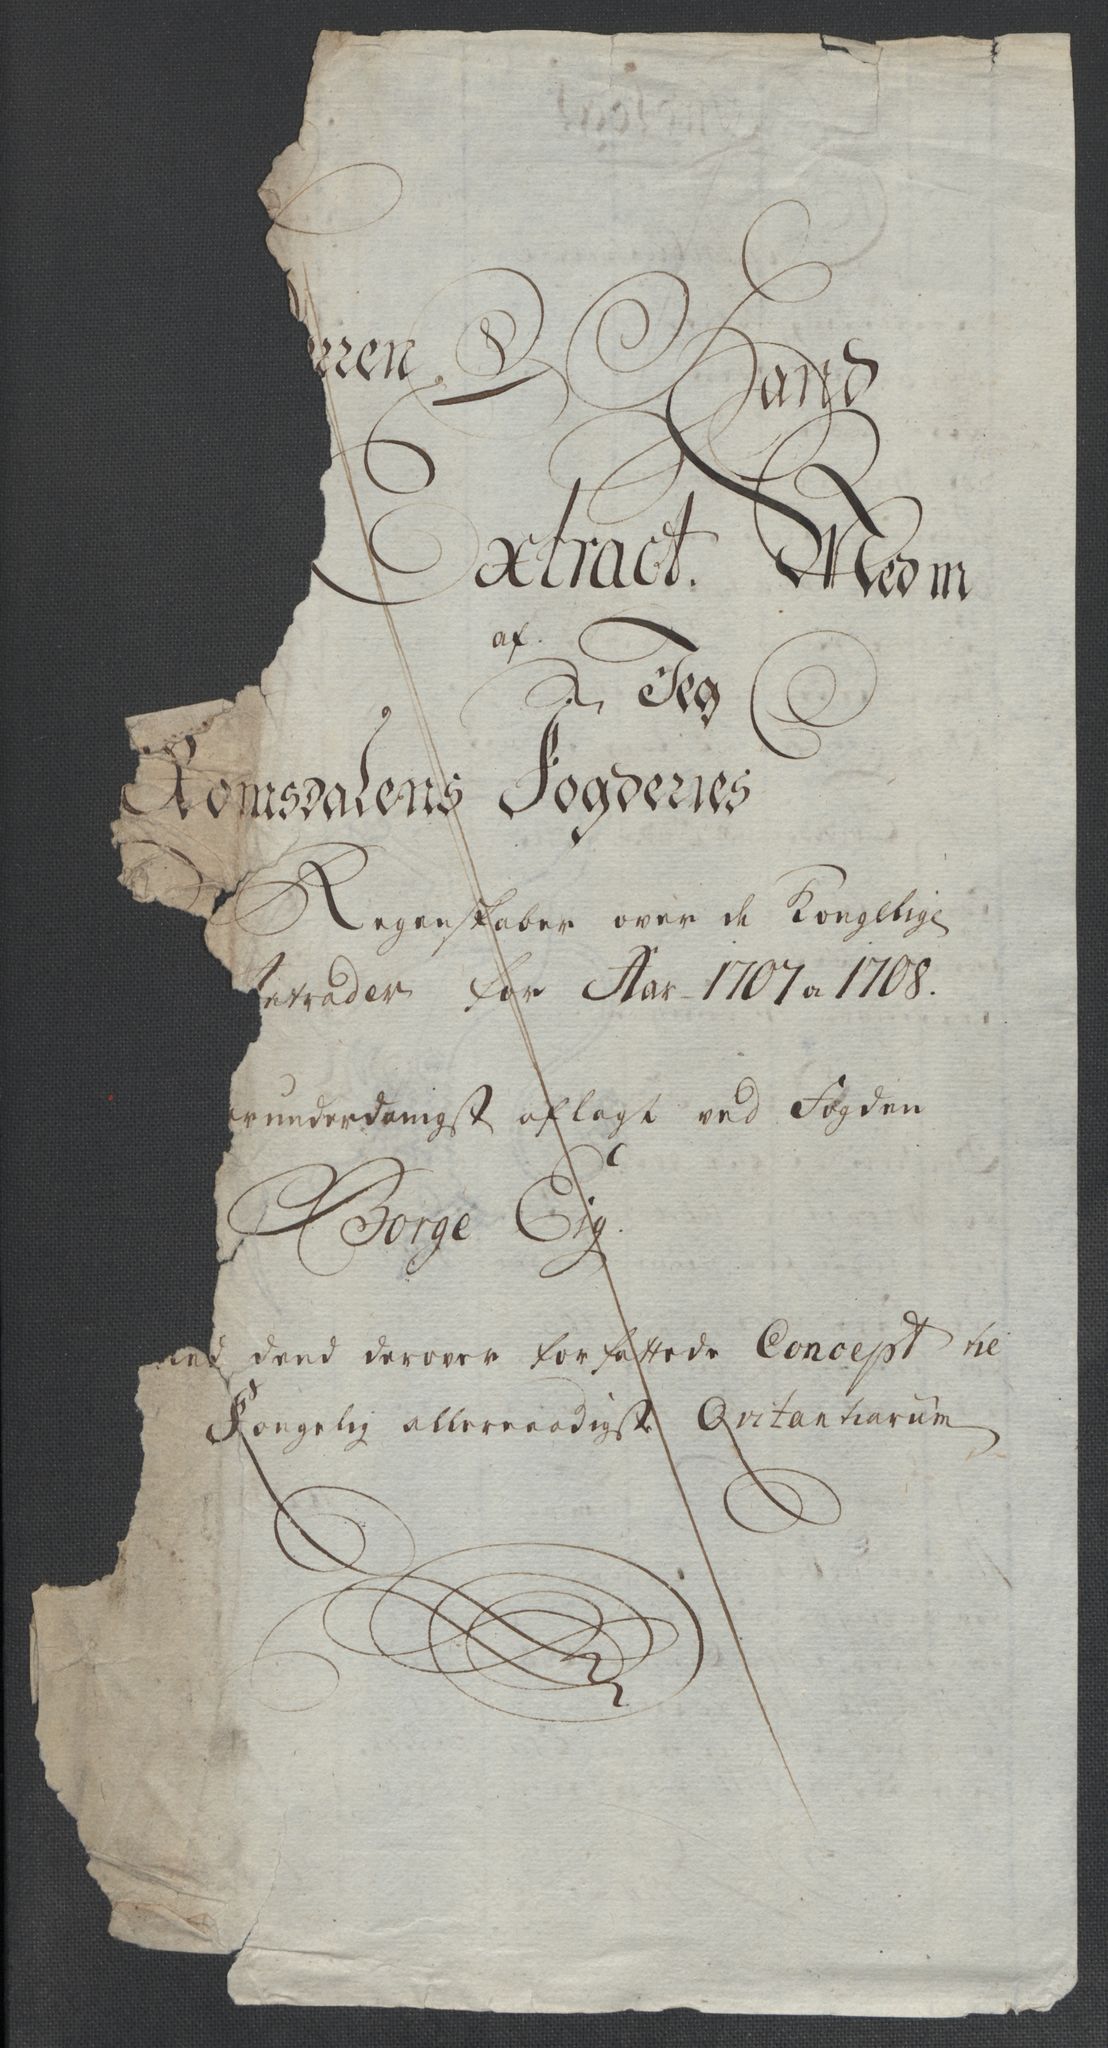 rren Hand
Extract. Med m
af.
Jeg
Romsdalens Fogderies
Regenskaber over de Kongelige
ntrader for Aar 1707 a 1708.
runderdanigst aflagt ved Fogden
Borge Eigᶜ.
med dend derover forfattede Concept til
Kongelig allernaadigste Qvitantiarum